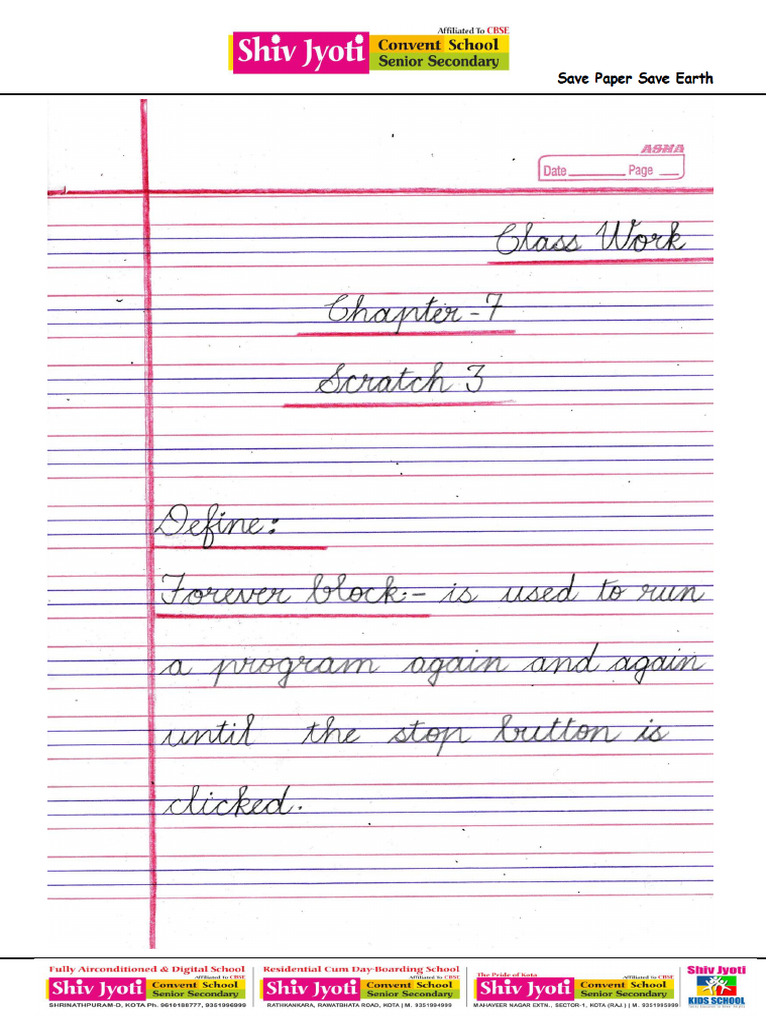 Affiliated To CBSE
Shiv Jyoti Convent School
Senior Secondary
Save Paper Save Earth
ASHA
Date Page
Class Work
Chapter-7
Scratch 3
Define:
Forever block:- is used to run
a program again and again
until the stop button is
clicked.
Fully Airconditioned & Digital School
Affiliated To CBSE
Shiv Jyoti Convent School
Senior Secondary
SHRINATHPURAM-D, KOTA Ph. 9618188777, 9351996999
Residential Cum Day-Boarding School
Affiliated To CBSE
Shiv Jyoti Convent School
Senior Secondary
RATHKANKARA, RAWATBHATA ROAD, KOTA | M. 9351994999
The Pride of Kota
Affiliated To CBSE
Shiv Jyoti Convent School
Senior Secondary
MAHAVEER NAGAR EXTN., SECTOR-1, KOTA (RAJ.) | M. 9351995999
Shiv Jyoti
KIDS SCHOOL